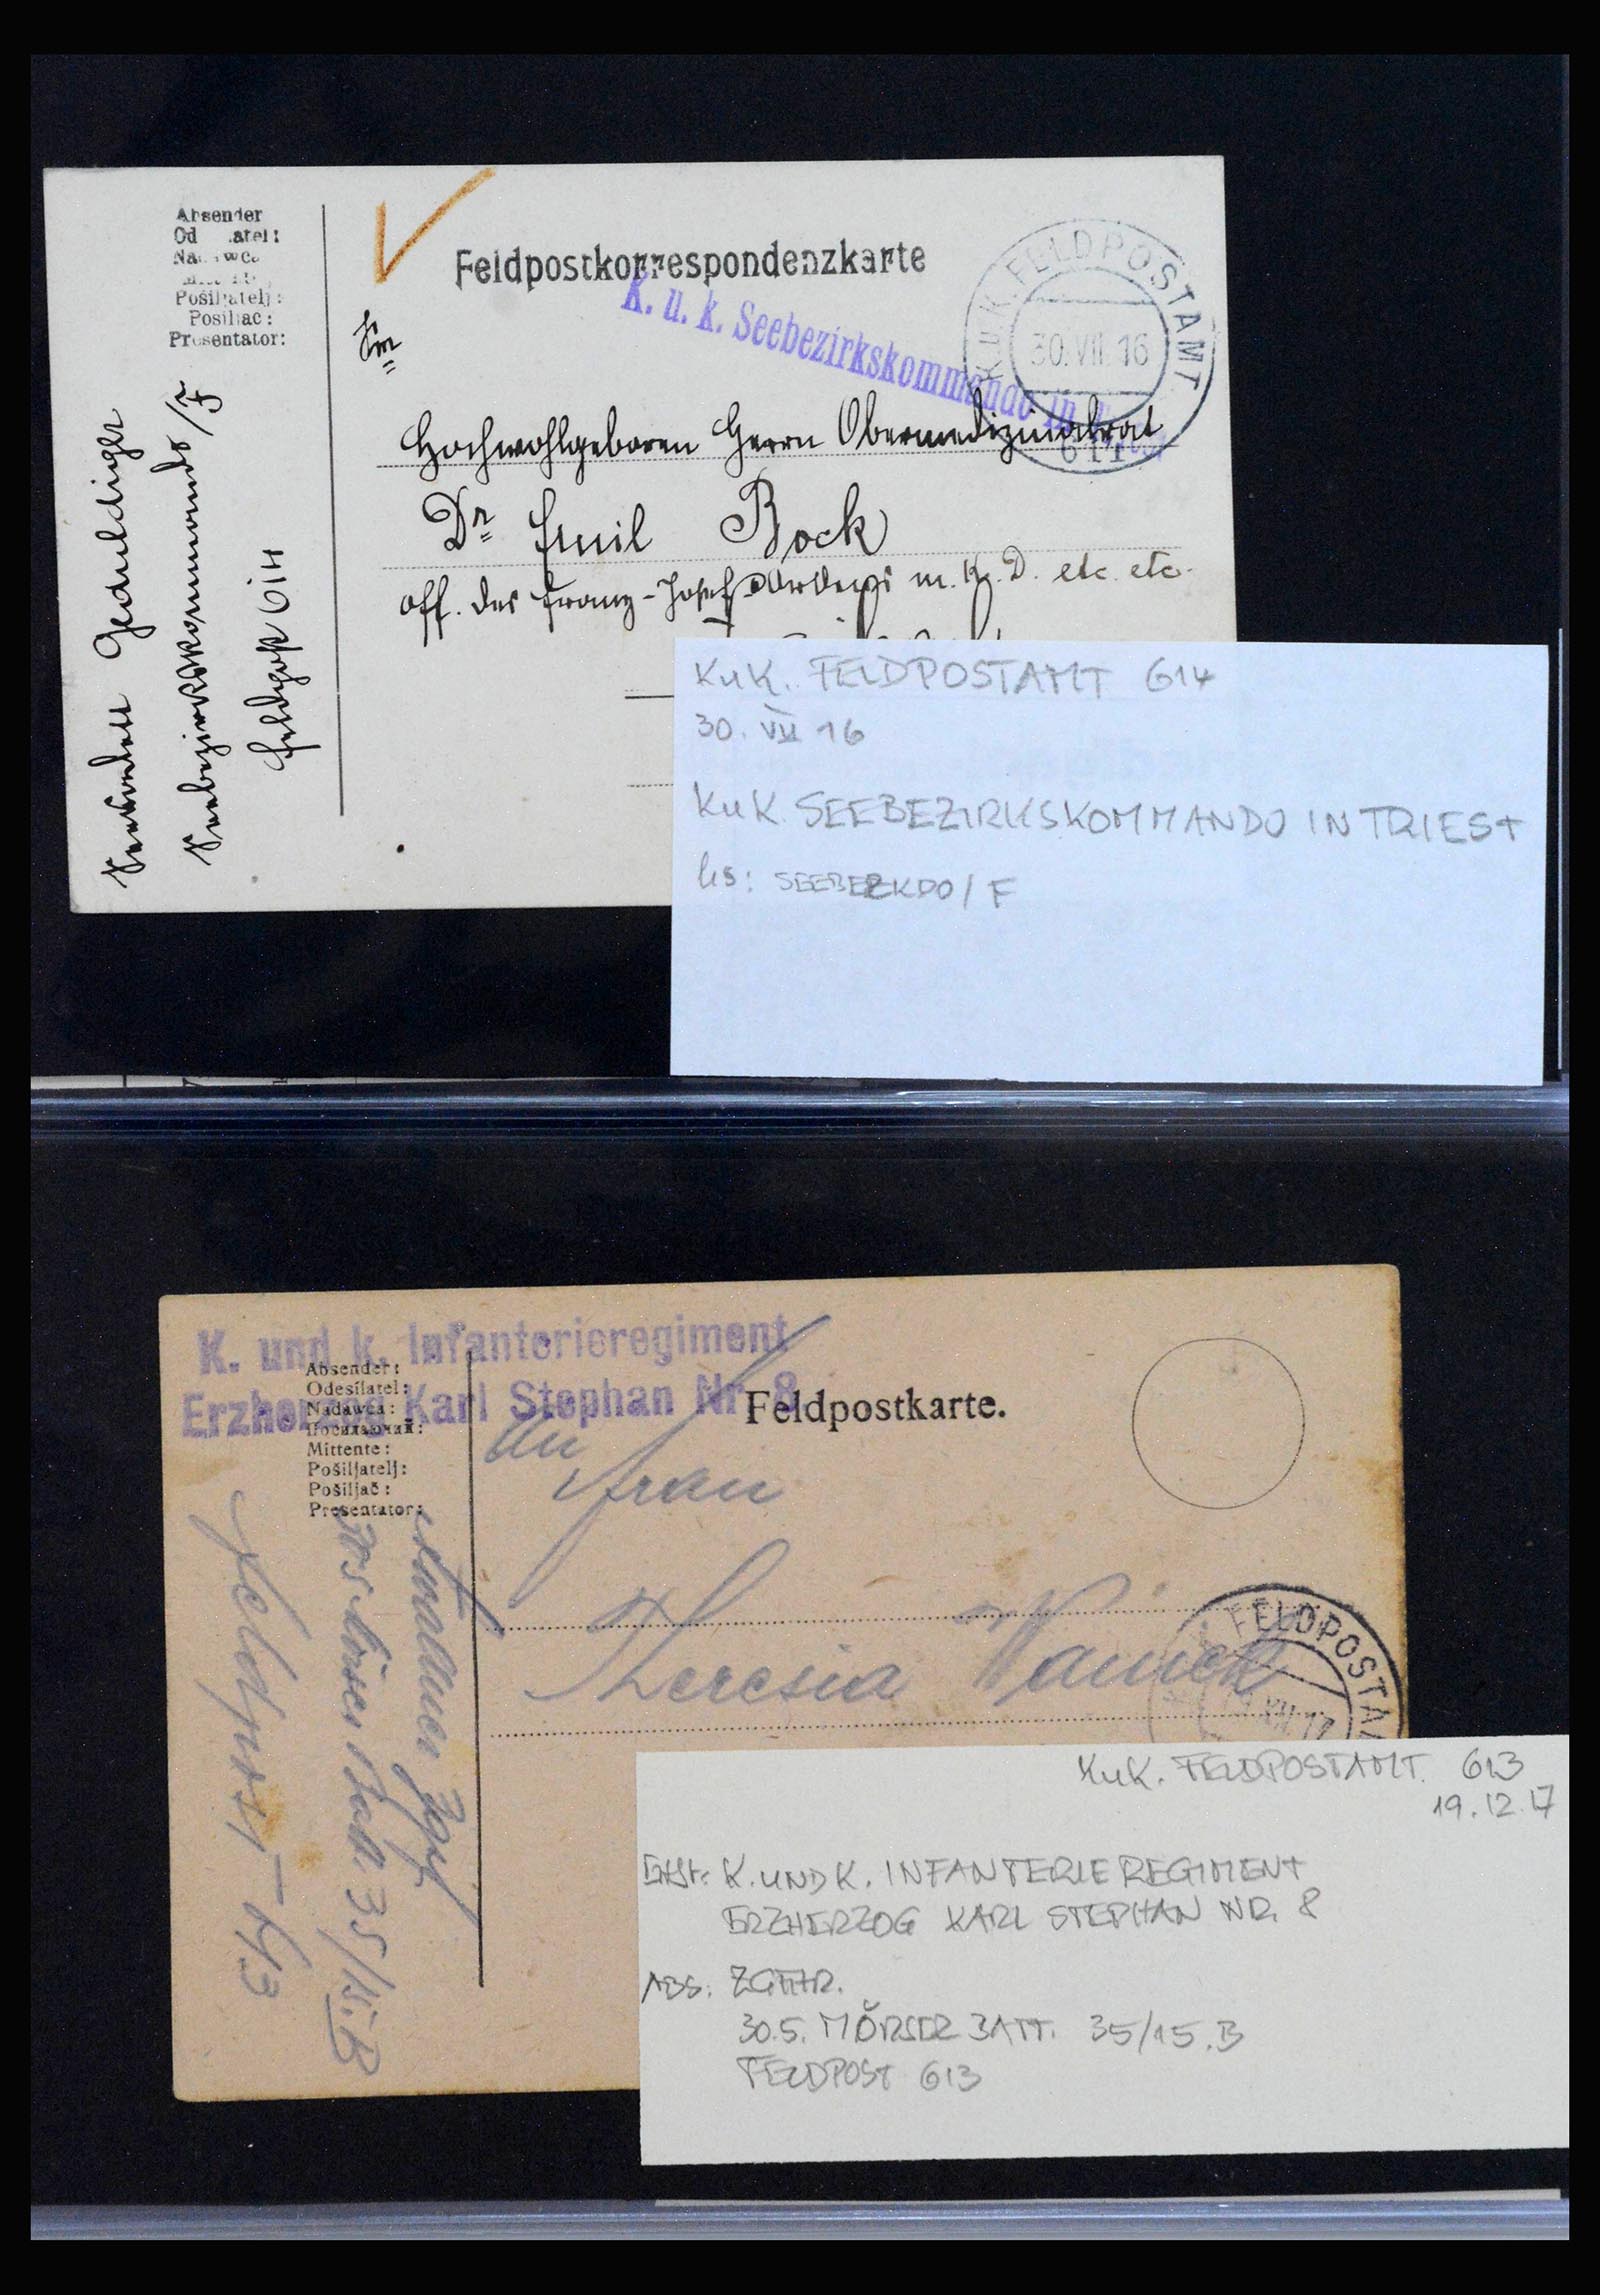 Absender
Od .atel:
Pošiljatelj:
Posiliac:
Presentator:
Geduldiger
Seebezirkskommando / F
Feldpost 614
Feldpostkorrespondenzkarte
K. u. k. Seebezirkskommando in Triest
K.U.K. FELDPOSTAMT
30.VII.16
614
Hochwohlgeboren Herrn Obermedizinalrat
Dr Emil Bock
Off. des Franz-Josef-Ordens m. Kr. D. etc. etc.
KuK. FELDPOSTAMT 614
30. VII 16
KuK. SEEBEZIRKSKOMMANDO IN TRIEST
hs: SEEBEZKDO / F
K. und k. Infanterieregiment
Erzherzog Karl Stephan Nr. 8
Absender:
Odesílatel:
Nadawca:
Посилаючий:
Mittente:
Pošiljatelj:
Pošiljač:
Presentator:
Feldpostkarte.
An
Frau
Theresia
FELDPOSTA
XII.17
35/15.B
Feldpost 613
KuK. FELDPOSTAMT. 613
19.12.17
K. UND K. INFANTERIEREGIMENT
ERZHERZOG KARL STEPHAN NR. 8
ABS: ZGFHR.
30.5. MÖRSER BATT. 35/15.B
FELDPOST 613